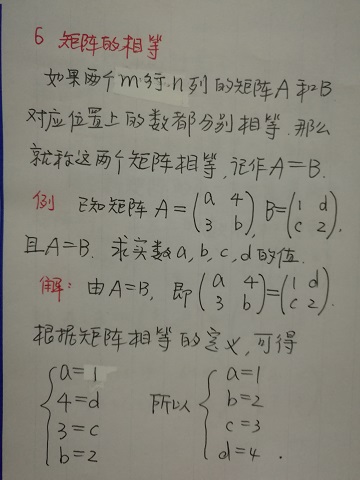 6 矩阵的相等
如果两个m行n列的矩阵A和B
对应位置上的数都分别相等,那么
就称这两个矩阵相等,记作A=B.
例 已知矩阵 A=(a 4
3 b), B=(1 d
c 2),
且A=B. 求实数a,b,c,d的值.
解: 由A=B, 即(a 4
3 b)=(1 d
c 2).
根据矩阵相等的定义,可得
{a=1
4=d
3=c
b=2
所以 {a=1
b=2
c=3
d=4.